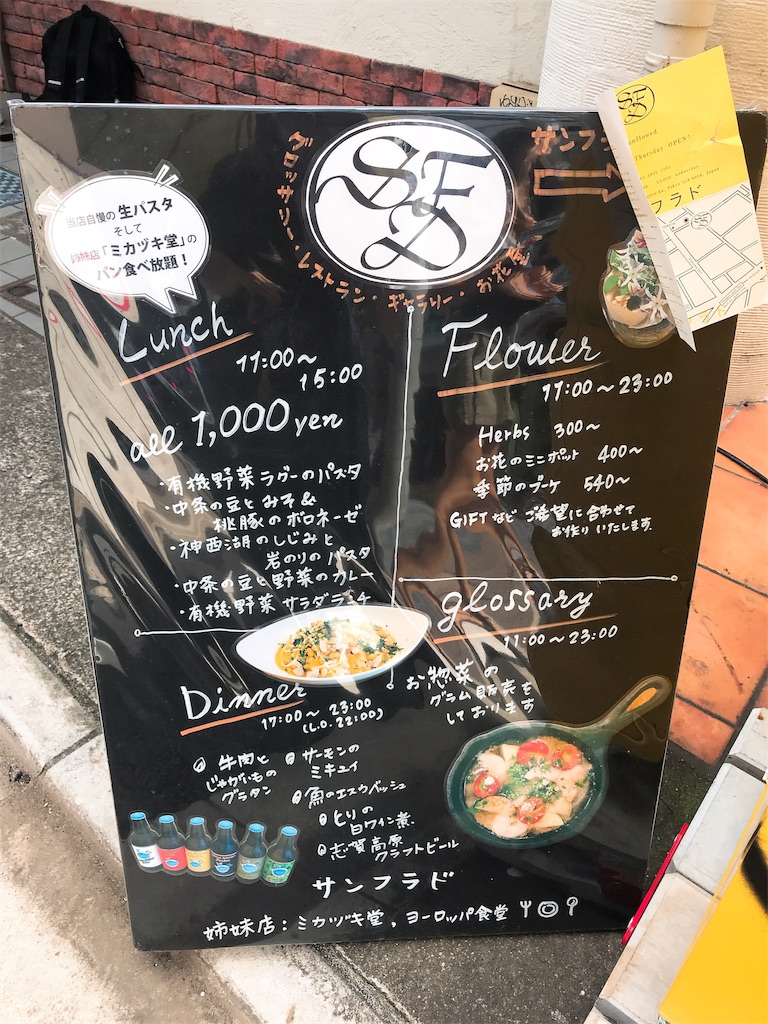 SFD
グロッサリー・レストラン・ギャラリー・お花屋
サンフ
当店自慢の 生パスタ
そして
姉妹店「ミカヅキ堂」の
パン食べ放題！
Lunch
11:00〜
15:00
all 1,000 yen
・有機野菜ラグーのパスタ
・中条の豆とみそ&
桃豚のボロネーゼ
・神西湖のしじみと
岩のりのパスタ
・中条の豆と野菜のカレー
・有機野菜サラダランチ
Flower
11:00〜23:00
Herbs 300〜
お花のミニポット 400〜
季節のブーケ 540〜
GIFTなど ご希望に合わせて
お作りいたします.
glossary
11:00〜23:00
お惣菜の
グラム販売を
しております
Dinner
17:00〜23:00
(L.O. 22:00)
牛肉と
じゃがいもの
グラタン
サーモンの
ミキュイ
魚のエスカベッシュ
とりの
白ワイン煮.
志賀高原
クラフトビール
サンフラド
姉妹店：ミカヅキ堂, ヨーロッパ食堂
SFD
Thursday OPEN!
フラド